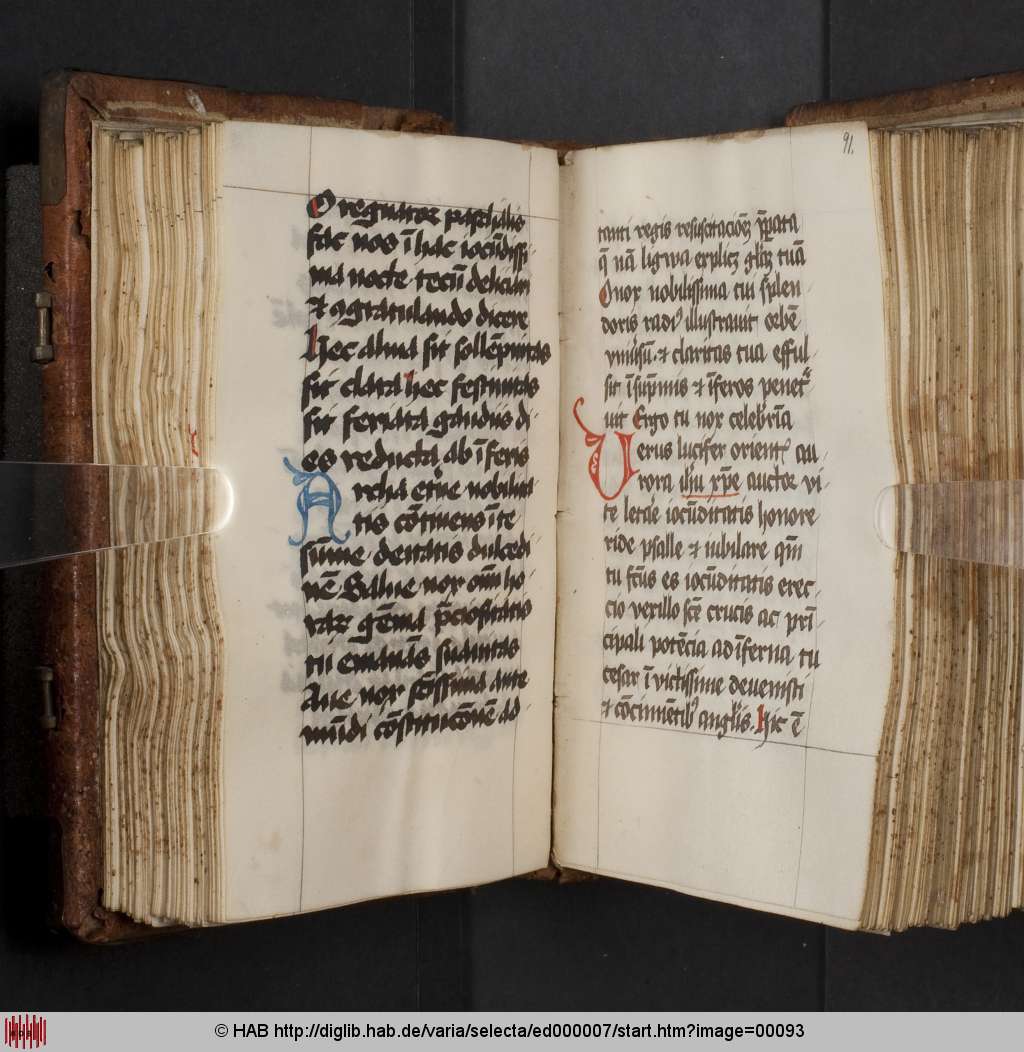 O regnator paschalis
fac nos ī hac iocūdissi
ma nocte tecū deliciari
et ɔgratulando dicere
Hec alma sit sollēpnitas
sit clara hec festiuitas
sit feriata gaudiis di
es reducta ab īferis
Archa etne nobilita
tis cōtinens īte
sūme deitatis dulcedi
nē Salue nox om̄ ho
rar gēma p̄ciositatis
tu emanās suauitas
Aue nox sc̄issima ante
mūdi cōstitucōnē ad
91.
tanti regis resuscitacioēʒ p̄pata
q̄ nā ligwa explicʒ gl̄iʒ tuā
O nox nobilissima cui splen
doris radi⁹ illustrauit orbē
vniūsū et claritas tua efful
sit ī sup̄mis et īferos penet̄
uit Ergo tu nox celebr̄ia
Uerus lucifer orient᷑ au
rora ih̄u xp̄e auctor vi
te letare iocūditatis honore
ride psalle et iubilare qm̄
tu fc̄us es iocūditatis erec
cio vexillo sc̄e crucis ac prī
cipali potēcia ad īferna tu
cesar ī victissime deuenisti
et cōcinnētib⁹ angl̄is. Hic ē
© HAB http://diglib.hab.de/varia/selecta/ed000007/start.htm?image=00093